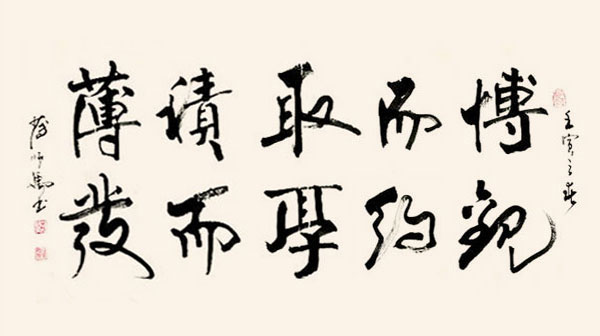 壬寅之春
博觀
而約
取厚
積而
薄發